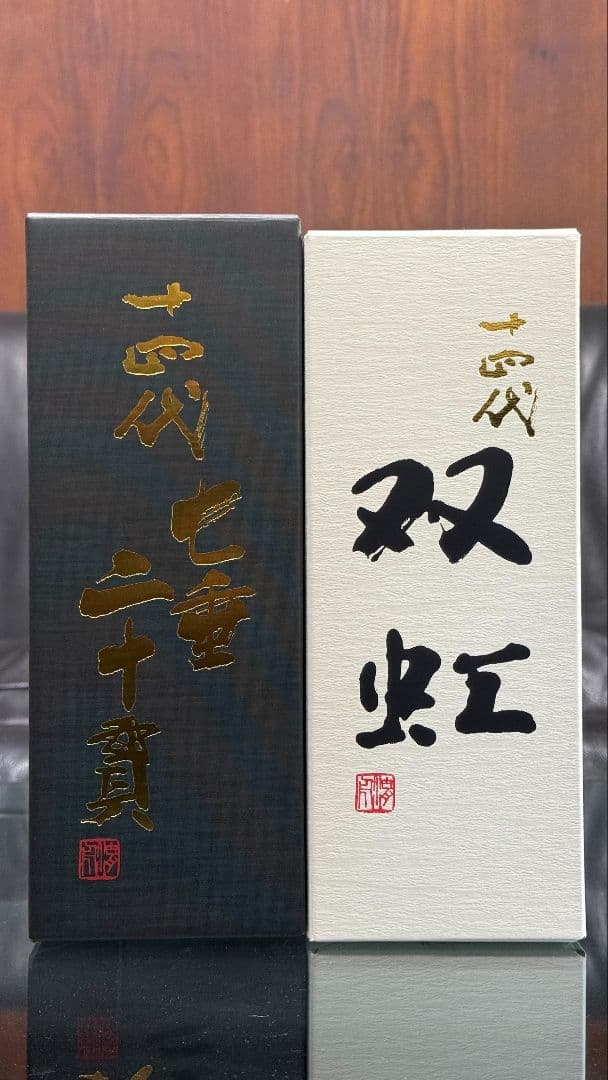 十四代
七垂
二十貫
十四代
双虹